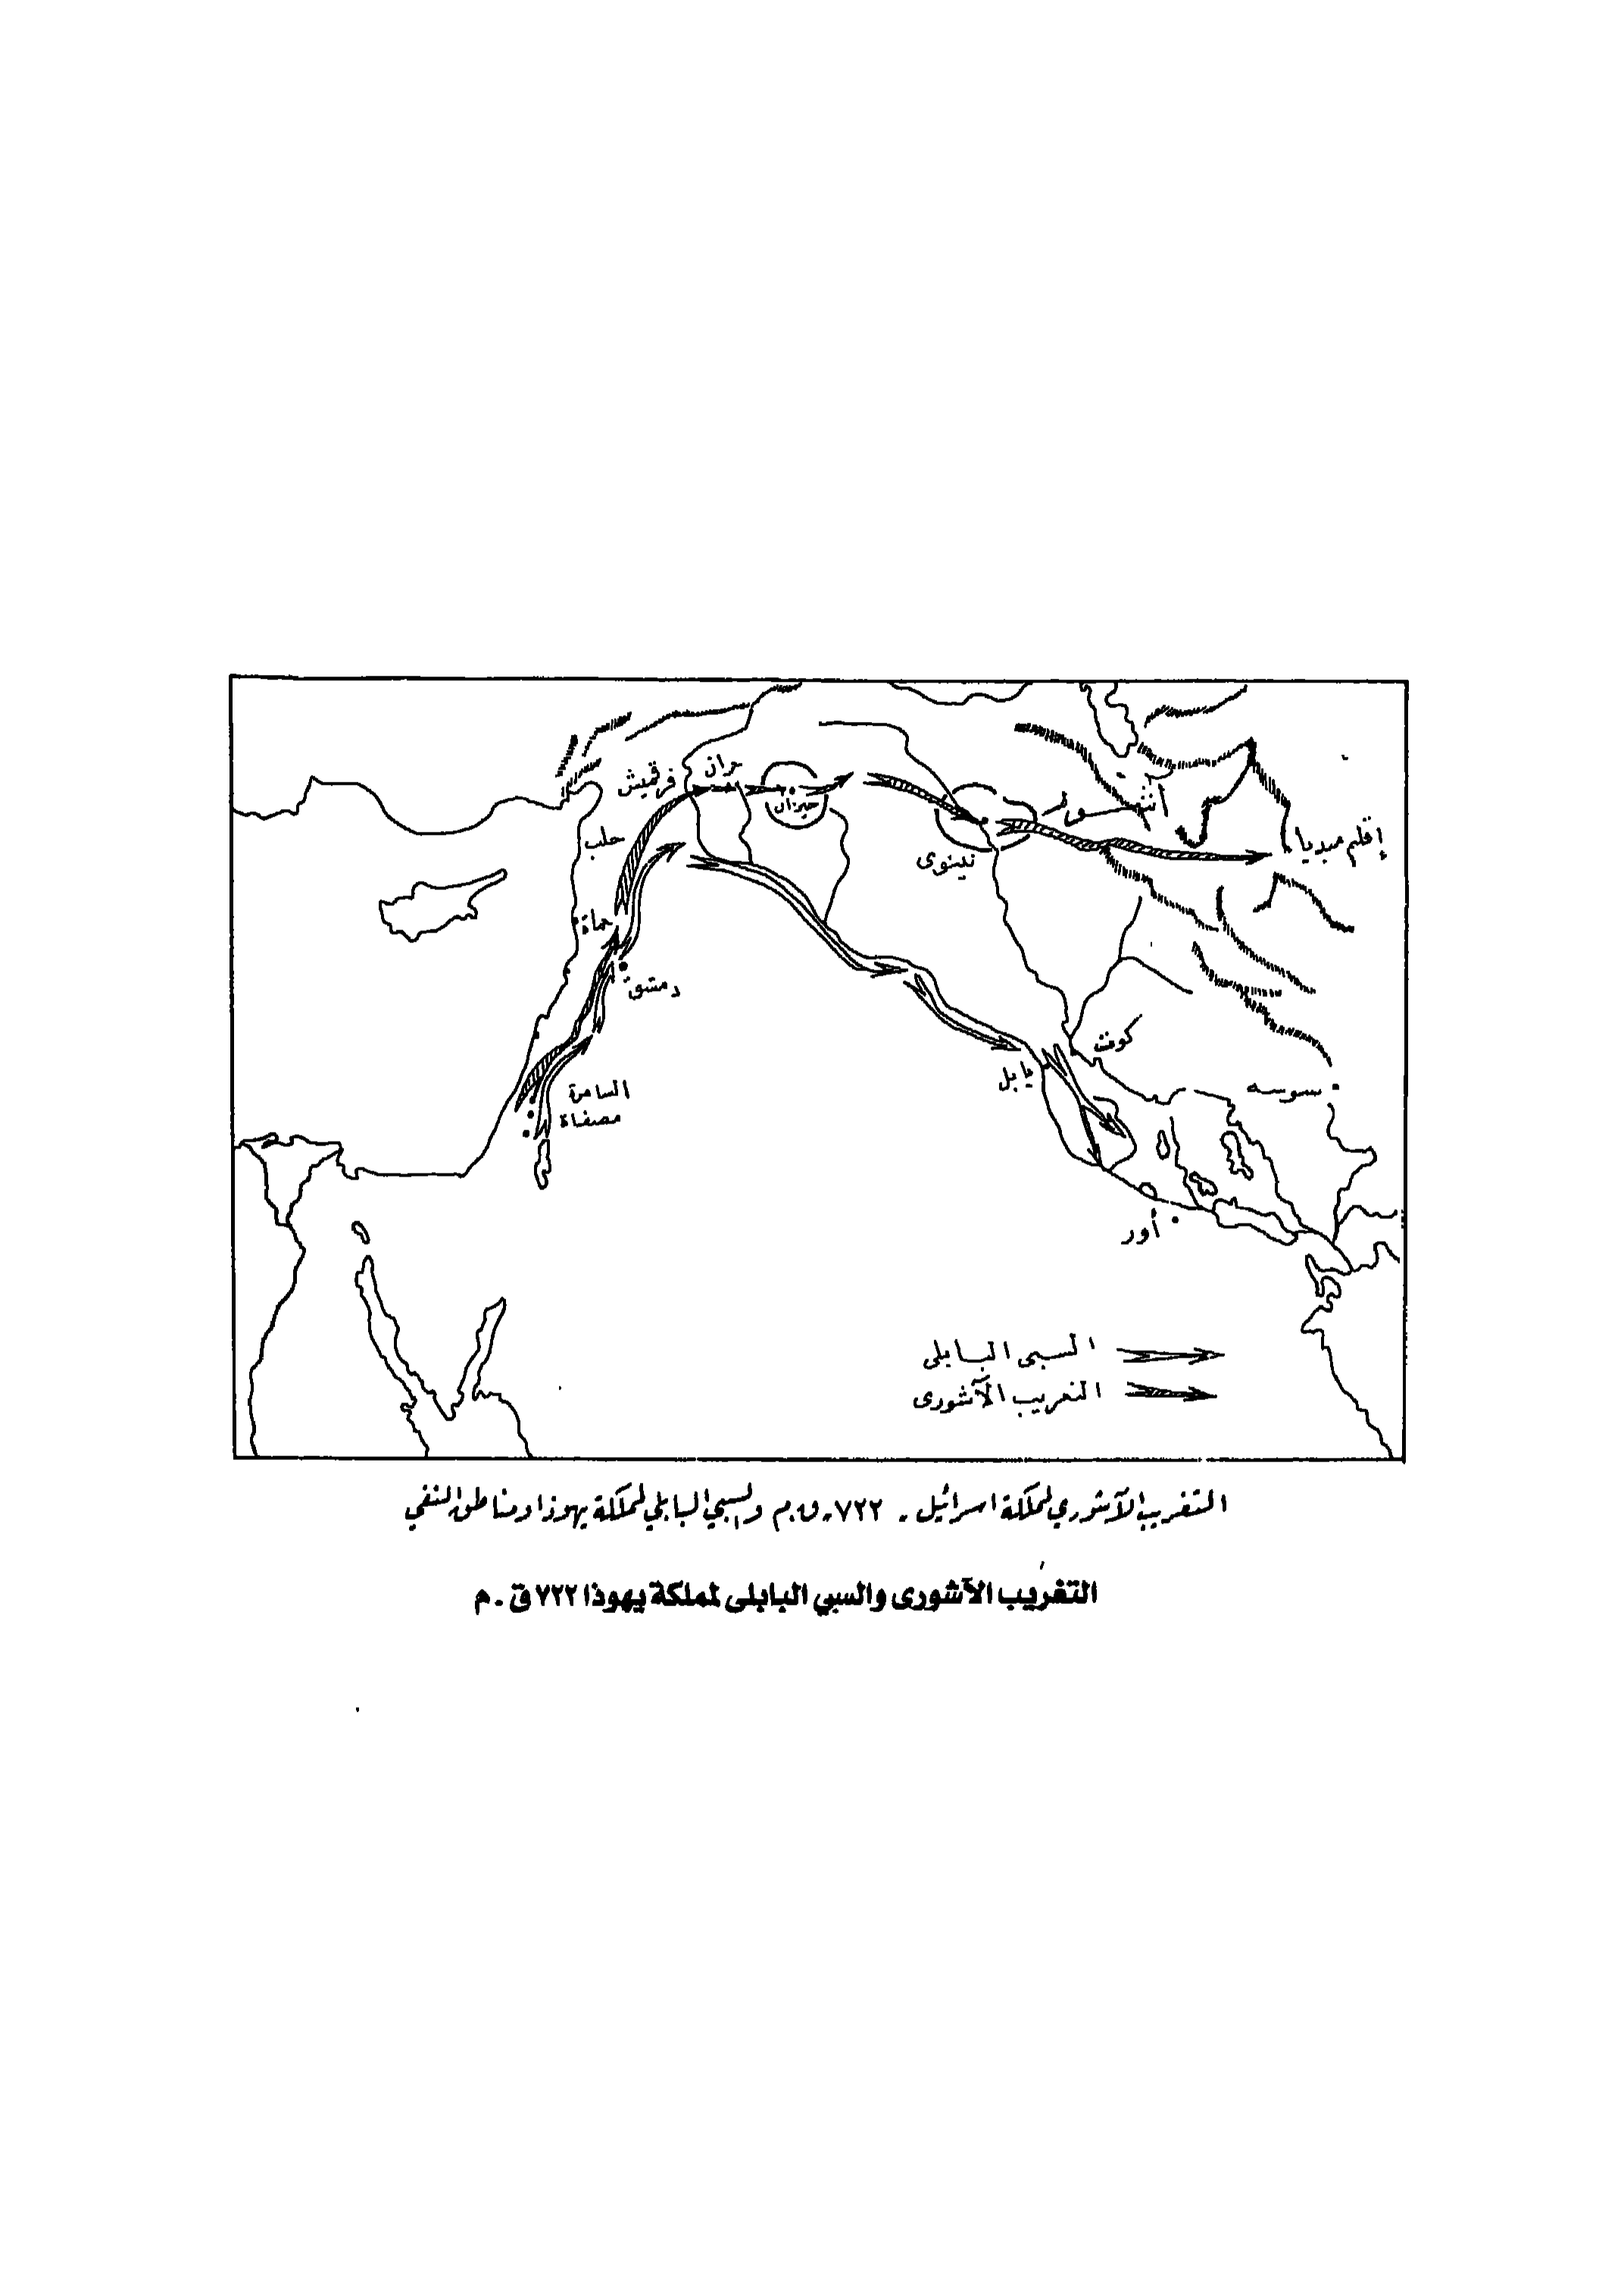 حران
قرقميش
جوزان
آشور
إقلم ميديا
حلب
نينوى
حماة
دمشق
كوت
بابل
السامرة
مصفاة
سوسه
أور
السبى البابلى
التغريب الآشورى
التغريب الآشوري لمملكة اسرائيل . ٧٢٢.ق.م والسبي البابلي لمملكة يهوذا ومناطق النفي
التغريب الآشورى والسبي البابلى لمملكة يهوذا ٧٢٢ ق.م